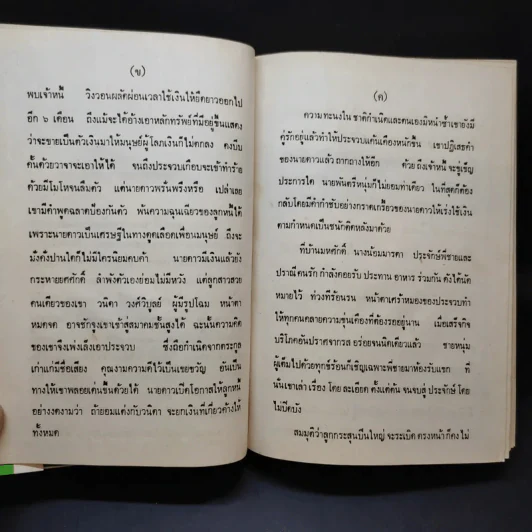 (ข)
พบเจ้าหนี้ วิงวอนผลัดผ่อนเวลาใช้เงินให้ยืดยาวออกไป
อีก ๖ เดือน ถึงแม้จะได้อ้างเอาหลักทรัพย์ที่มีอยู่ขึ้นแสดง
ว่าจะขายเป็นตัวเงินมาให้มนุษย์ผู้โลภเงินก็ไม่ตกลง คงบีบ
คั้นด้วยวาจาจะเอาให้ได้ จนถึงประจวบเกือบจะเข้าทำร้าย
ด้วยมีโมโหจนลืมตัว แต่นายดาวพรั่นพรึงหรือ เปล่าเลย
เขามีคำพูดฉลาดป้องกันตัว พ้นความฉุนเฉียวของลูกหนี้ได้
เพราะนายดาวเป็นเศรษฐีในทางดูดเลือดเพื่อนมนุษย์ ถึงจะ
มั่งคั่งปานใดก็ไม่มีใครนิยมคบค้า นายดาวมีเงินแล้วยัง
กระหายยศศักดิ์ ลำพังตัวเองย่อมไม่มีหวัง แต่ลูกสาวสวย
คนเดียวของเขา วนิดา วงศ์วิบูลย์ ผู้มีรูปโฉม หน้าตา
หมดจด อาจชักจูงเขาเข้าสู่สมาคมชั้นสูงได้ ฉะนั้นความคิด
ของเขาจึงเพ่งเล็งเอาประจวบ ซึ่งถือกำเนิดจากตระกูล
เก่าแก่มีชื่อเสียง คุณงามความดีไว้เป็นเชยขวัญ อันเป็น
ทางให้เขาพลอยเด่นขึ้นด้วยได้ นายดาวเปิดโอกาสให้ลูกหนี้
อย่างงดงามว่า ถ้ายอมแต่งกับวนิดา จะยกเงินที่เกี่ยวค้างให้
ทั้งหมด
(ค)
ความทะนงใน ชาติกำเนิดและตนเองมีหน้าซ้ำเขายังมี
คู่รักอยู่แล้วทำให้ประจวบแค้นเคืองหนักขึ้น เขาปฏิเสธคำ
ของนายดาวแล้ว ถากถางให้อีก ด้วย ถึงเจ้าหนี้ จะขู่เข็ญ
ประการใด นายพันตรีหนุ่มก็ไม่ยอมท่าเดียว ในที่สุดก็ต้อง
กลับโดยมีคำกำชับอย่างกราดเกรี้ยวของนายดาวให้เร่งใช้เงิน
ตามกำหนดเป็นชนักติดหลังมาด้วย
ที่บ้านมหศักดิ์ นางน้อมมารดา ประจักษ์พี่ชายและ
ปราณีคนรัก กำลังคอยรับ ประทาน อาหาร ร่วมกัน ดังได้นัด
หมายไว้ ท่วงทีร้อนรน หน้าตาเคร่าหมองของประจวบทำ
ให้ทุกคนคลายความขุ่นเคืองที่ต้องรออยู่นาน เมื่อเสร็จกิจ
บริโภคอันปราศจากรส อร่อยจนนิดเดียวแล้ว ชายหนุ่ม
ผู้เต็มไปด้วยทุกข์ร้อนก็เชิญเฉพาะพี่ชายมาห้องรับแขก ที่
นั่นเขาเล่า เรื่อง โดย ละเอียด ตั้งแต่ต้น จนจบสู่ ประจักษ์ โดย
ไม่ปิดบัง
สมมุติว่าลูกกระสุนปืนใหญ่ จะระเบิด ตรงหน้า ก็คงไม่